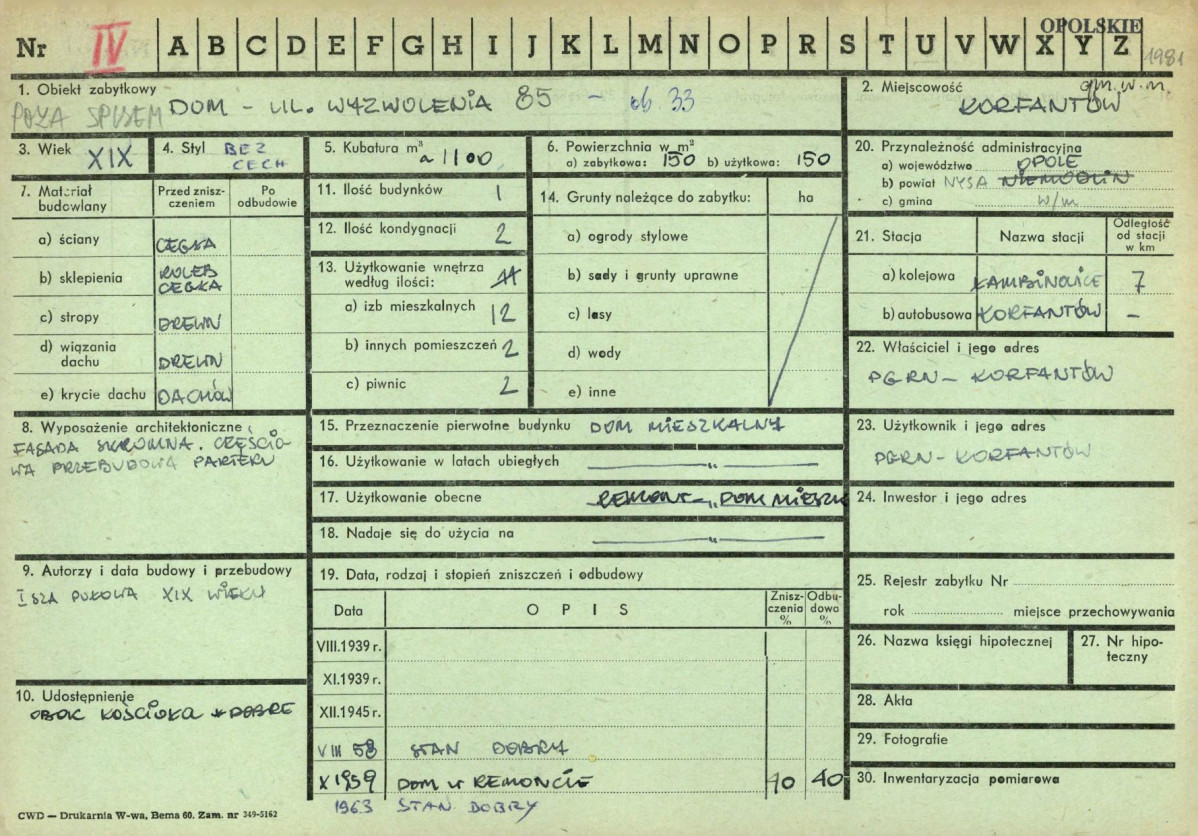 OPOLSKIE
Nr IV A B C D E F G H I J K L M N O P R S T U V W X Y Z
1981
1. Obiekt zabytkowy
POZA SPISEM DOM - UL. WYZWOLENIA 85 - ob. 33
2. Miejscowość gm. w. m.
KORFANTÓW
3. Wiek XIX
4. Styl BEZ CECH
5. Kubatura m³
~ 1100
6. Powierzchnia w m²
a) zabytkowa: 150 b) użytkowa: 150
20. Przynależność administracyjna
a) województwo OPOLE
b) powiat NYSA NIEMODLIN
c) gmina w/m
7. Materiał budowlany
Przed zniszczeniem
Po odbudowie
a) ściany CEGŁA
b) sklepienia KOLEB CEGŁA
c) stropy DREWN
d) wiązania dachu DREWN
e) krycie dachu DACHÓW
11. Ilość budynków 1
12. Ilość kondygnacji 2
13. Użytkowanie wnętrza według ilości:
a) izb mieszkalnych 12
b) innych pomieszczeń 2
c) piwnic 2
14. Grunty należące do zabytku: ha
a) ogrody stylowe
b) sady i grunty uprawne
c) lasy
d) wody
e) inne
21. Stacja Nazwa stacji Odległość od stacji w km
a) kolejowa ŁAMBINOWICE 7
b) autobusowa KORFANTÓW -
22. Właściciel i jego adres
PGRN - KORFANTÓW
8. Wyposażenie architektoniczne
FASADA SKROMNA. CZĘŚCIO-
WA PRZEBUDOWA PARTERU
15. Przeznaczenie pierwotne budynku DOM MIESZKALNY
16. Użytkowanie w latach ubiegłych —"—
17. Użytkowanie obecne REMONT - „DOM MIESZK
18. Nadaje się do użycia na —"—
23. Użytkownik i jego adres
PGRN - KORFANTÓW
24. Inwestor i jego adres
9. Autorzy i data budowy i przebudowy
I SZA POŁOWA XIX WIEKU
19. Data, rodzaj i stopień zniszczeń i odbudowy
Data OPIS Zniszczenia % Odbudowa %
VIII.1939 r.
XI.1939 r.
XII.1945 r.
VIII 58 STAN DOBRY
X 1959 DOM W REMONCIE 40 40
1963 STAN DOBRY
25. Rejestr zabytku Nr
rok miejsce przechowywania
26. Nazwa księgi hipotecznej
27. Nr hipoteczny
28. Akta
29. Fotografie
30. Inwentaryzacja pomiarowa
10. Udostępnienie
OBOK KOŚCIOŁA DOBRE
CWD — Drukarnia W-wa, Bema 60. Zam. nr 349-5162